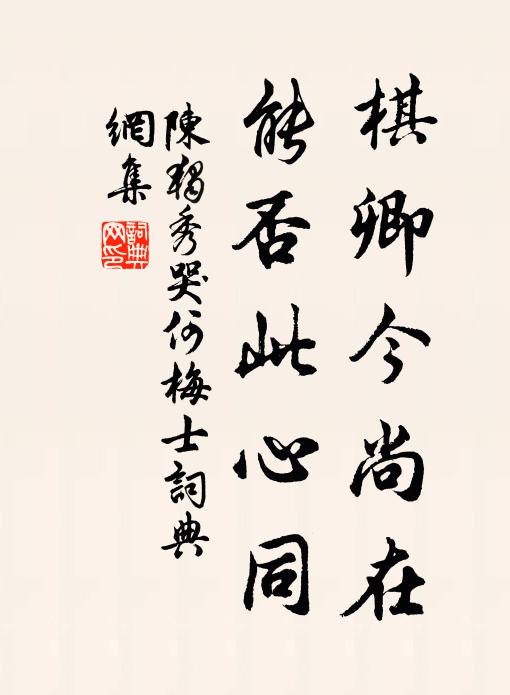 棋卿今尚在
能否此心同
陳獨秀哭何梅士詞典
網集
詞典
网印